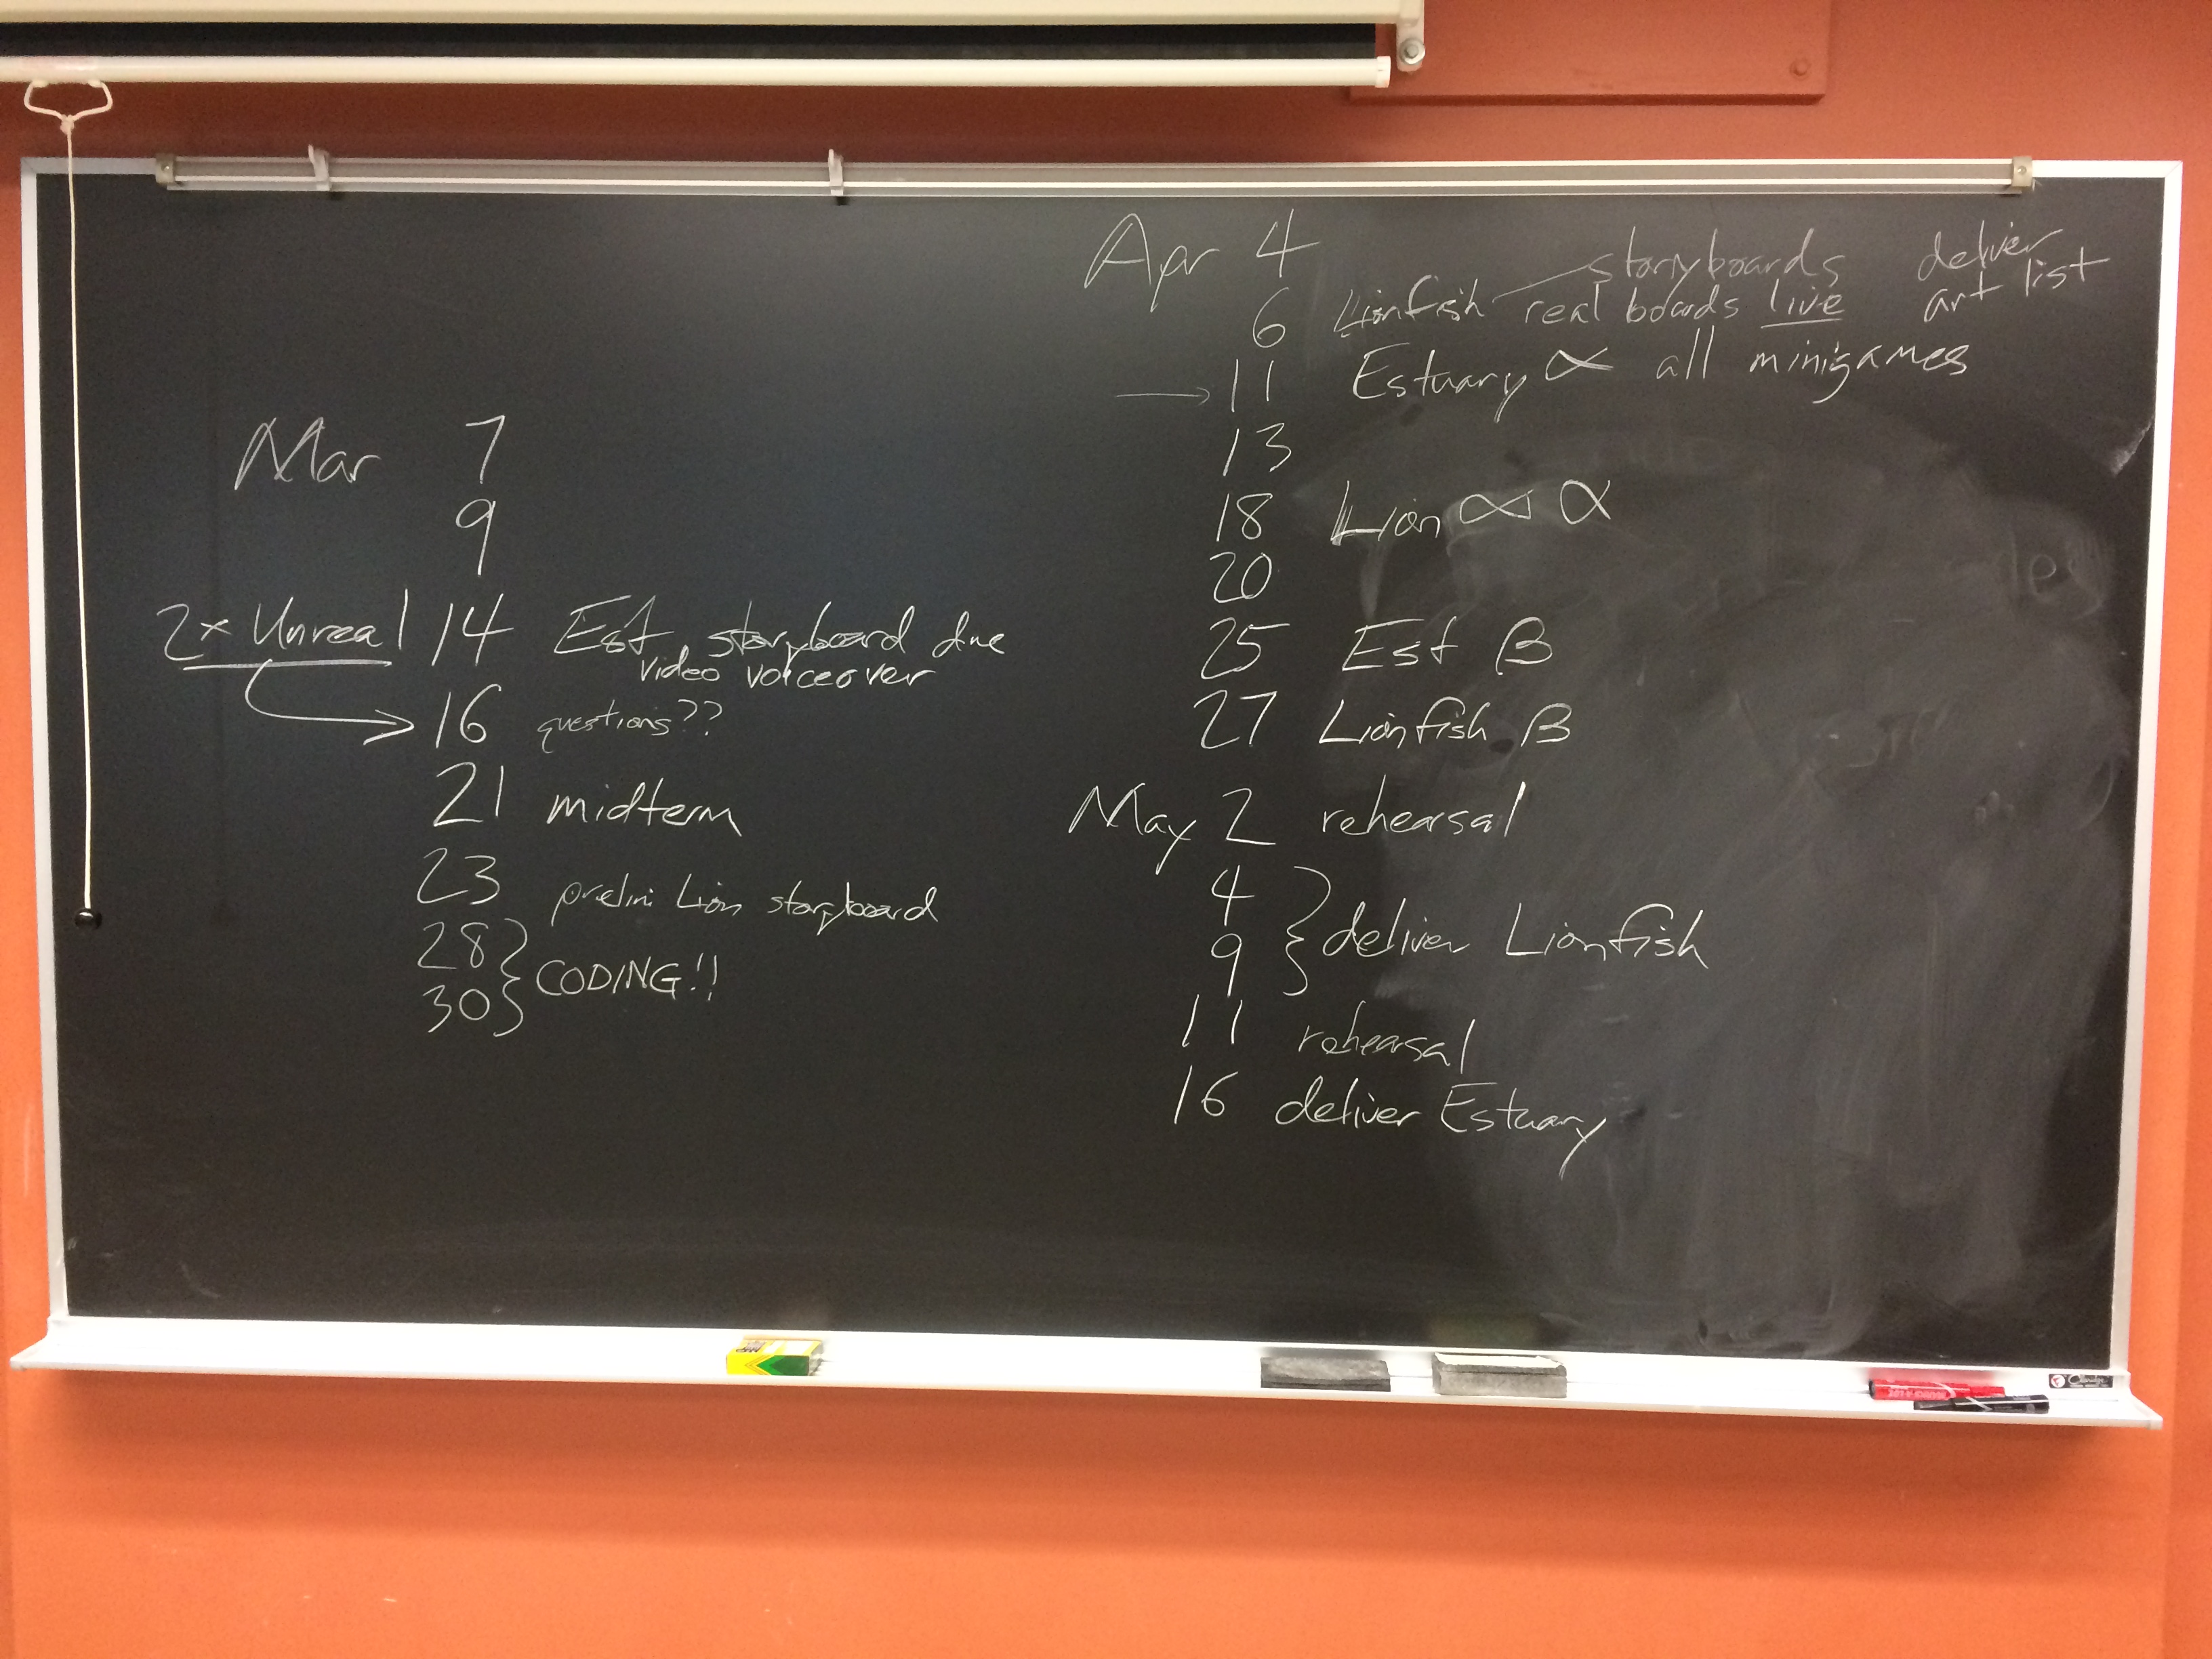 Mar 7
9
2x Unreal 14 Est storyboard due
video voiceover
16 questions??
21 midterm
23 prelim Lion storyboard
28
30 CODING!!
Apr 4
storyboards deliver
6 Lionfish real boards live art list
→ 11 Estuary α all minigames
13
18 Lion α α
20
25 Est β
27 Lionfish β
May 2 rehearsal
4
9 deliver Lionfish
11 rehearsal
16 deliver Estuary